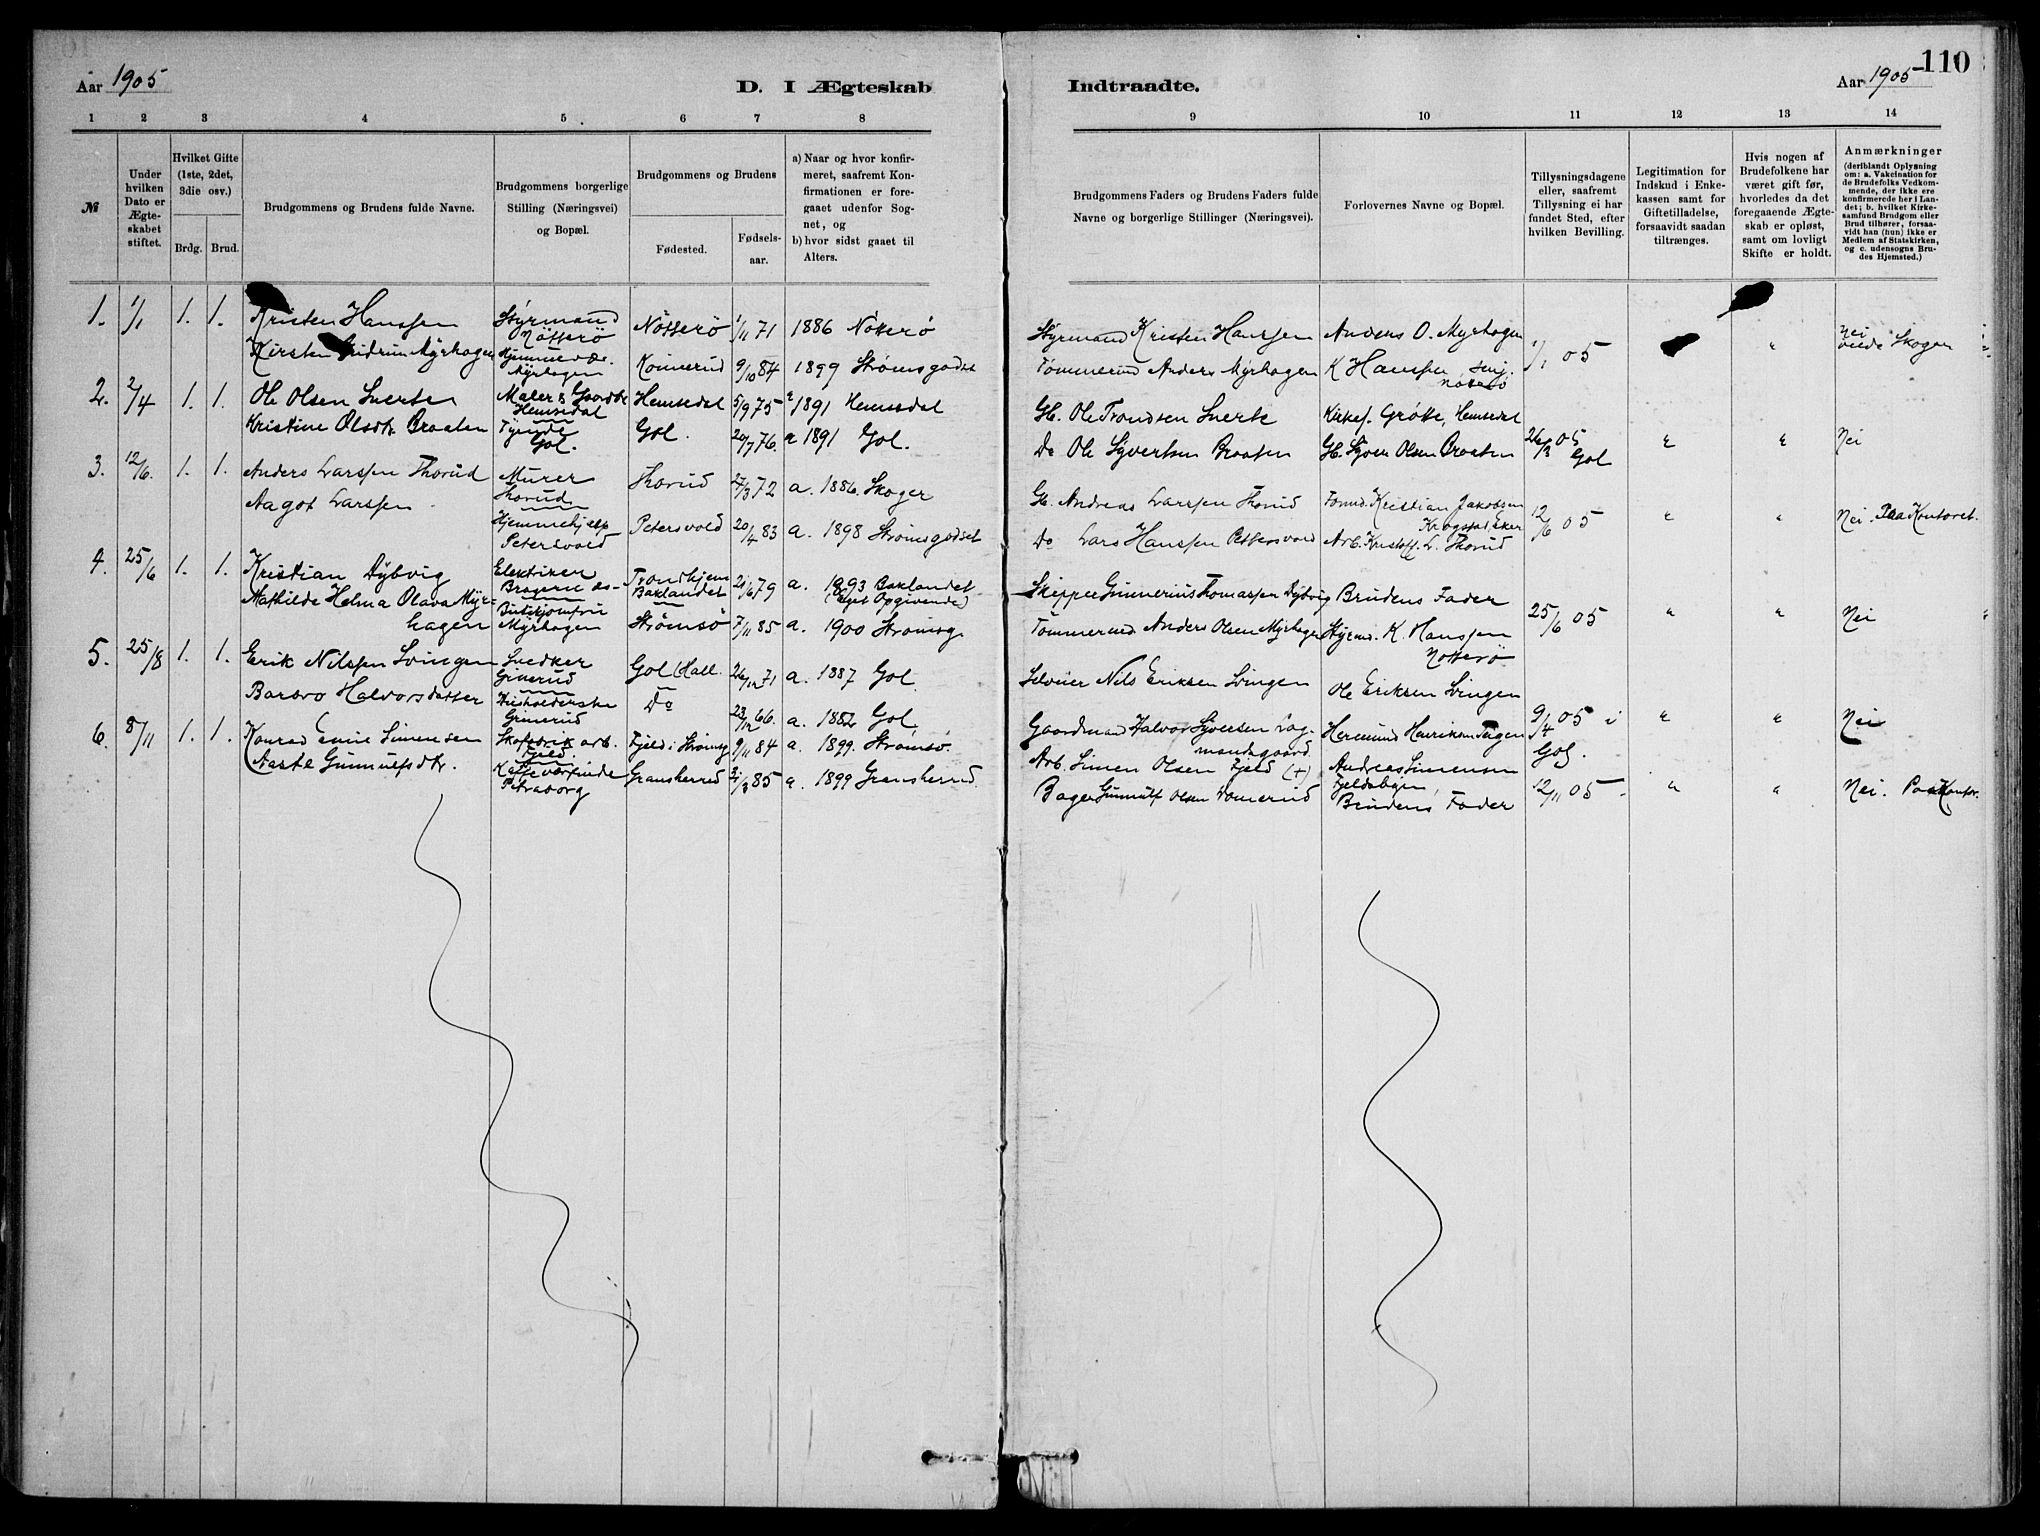 110
Aar 1905
D. I Ægteskab
Indtraadte.
Aar 1905
1 2 3 4 5 6 7 8
9 10 11 12 13 14
№
Under hvilken Dato er Ægteskabet stiftet.
Hvilket Gifte (1ste, 2det, 3die osv.)
Brdg. Brud.
Brudgommens og Brudens fulde Navne.
Brudgommens borgerlige Stilling (Næringsvei) og Bopæl.
Brudgommens og Brudens
Fødested.
Fødsels-aar.
a) Naar og hvor konfirmeret, saafremt Konfirmationen er foregaaet udenfor Sognet, og
b) hvor sidst gaaet til Alters.
Brudgommens Faders og Brudens Faders fulde Navne og borgerlige Stillinger (Næringsvei).
Forlovernes Navne og Bopæl.
Tillysningsdagene eller, saafremt Tillysning ei har fundet Sted, efter hvilken Bevilling.
Legitimation for Indskud i Enkekassen samt for Giftetilladelse, forsaavidt saadan tiltrænges.
Hvis nogen af Brudefolkene har været gift før, hvorledes da det foregaaende Ægteskab er opløst, samt om lovligt Skifte er holdt.
Anmærkninger (deriblandt Oplysning om: a. Vakcination for de Brudefolks Vedkommende, der ikke ere konfirmerede her i Landet; b. hvilket Kirkesamfund Brudgom eller Brud tilhører, forsaavidt han (hun) ikke er Medlem af Statskirken, og c. udensogns Brudes Hjemsted.)
1. 1/1 1. 1. Kristen Hanssen Styrmand Nötterö Nötterö 1/11 71 1886 Nötterö
Styrmand Kristen Hanssen Anders O. Myrhagen 1/1 05 " Nei Skoger
Kirsten Gudrun Myrhagen Myrhagen Konnerud 9/10 84 1899 Strømsgodset
Tømmermd Anders Myrhagen K Hanssen senj. Nøtterø
2. 2/4 1. 1. Ole Olsen Snerten Maler & Gaardbr. Hemsedal Hemsedal 5/9 75 1891 Hemsedal
Gb. Ole Trondsen Snerte Kirkes. Grøtte, Hemsedal
Kristine Olsdtr. Braaten Tjende Gol. Gol. 20/7 76. a 1891 Gol.
Do Ole Syvertsen Braaten Gb. Syver Olsen Braaten 26/3 05 Gol " " Nei
3. 12/6. 1. 1. Anders Larssen Thorud Murer Thorud Thorud 27/3 72 a. 1886. Skoger
Gb. Andreas Larssen Thorud Tømmd. Kristian Jakobsen Krogstad, Eker 12/6 05 " " Nei. Paa Kontoret.
Aagot Larssen Hjemmehjelp Petersvold Petersvold 20/4 83 a. 1898 Strømsgodset
Do Lars Hanssen Pettersvold Arb. Kristoff. L. Thorud
4. 25/6 1. 1. Kristian Dybvig Elektriker Bragernes Trondhjem Baklandet 21/6 79 a. 1893 Baklandet (Eget Opgivende)
Skipper Gunnerius Thomassen Dybvig Brudens Fader 25/6 05 " " Nei
Mathilde Helma Olava Myrhagen Butikjomfru Myrhagen Strømsö 7/11 85 a. 1900 Strømsg
Tømmermd Anders Olsen Myrhagen Styrmd. K. Hanssen Nøtterø
5. 25/8 1. 1. Erik Nilssen Svingen Snedker Gol (Hall. 26/12 71 a. 1887 Gol
Selveier Nils Eriksen Svingen Ole Eriksen Svingen
Barbro Halvorsdatter Husholderske Do 23/12 66. a. 1882 Gol.
Gaardmand Halvor Syversen Lagmandsgaard Hermund Henriksen Tugen 9/4 05 i Gol. " " Nei
6. 8/11 1. 1. Konrad Emil Simensen Skofabrik arb. Fjeld Fjeld i Strømsg 9/11 84 a. 1899. Strømsø.
Arb. Simen Olsen Fjeld (+) Andreas Simensen Fjeldabyen
Aaste Gunnulfsdtr. Kaffevertinde Gransherred 2/3 85 a. 1899 Gransherred
Bager Gunnulf Olsen Brudens Fader 12/11 05 " " Nei. Paa Kontor.